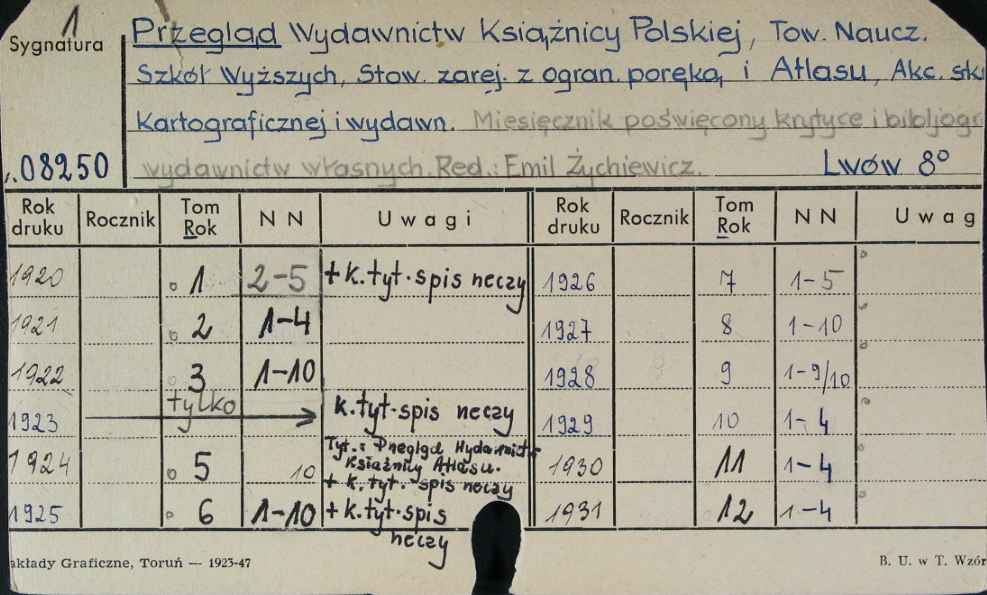 1
Sygnatura
Przegląd Wydawnictw Książnicy Polskiej, Tow. Naucz.
Szkół Wyższych, Stow. zarej. z ogran. poręką, i Atlasu, Akc. sk
Kartograficznej i wydawn. Miesięcznik poświęcony krytyce i bibljogr
08250
wydawnictw własnych. Red.: Emil Żychiewicz. Lwów 8°
Rok druku Rocznik Tom Rok N N Uwagi Rok druku Rocznik Tom Rok N N Uwag
1920 1 2-5 + k. tyt. spis rzeczy 1926 7 1-5
1921 2 1-4 1927 8 1-10
1922 3 1-10 1928 9 1-9/10
1923 tylko k. tyt. spis rzeczy 1929 10 1-4
1924 5 10 Tyt.: Przegląd Wydawnictw Książnicy Atlasu. + k. tyt. spis rzeczy 1930 11 1-4
1925 6 1-10 + k. tyt. spis rzeczy 1931 12 1-4
akłady Graficzne, Toruń — 1923-47 B. U. w T. Wzór